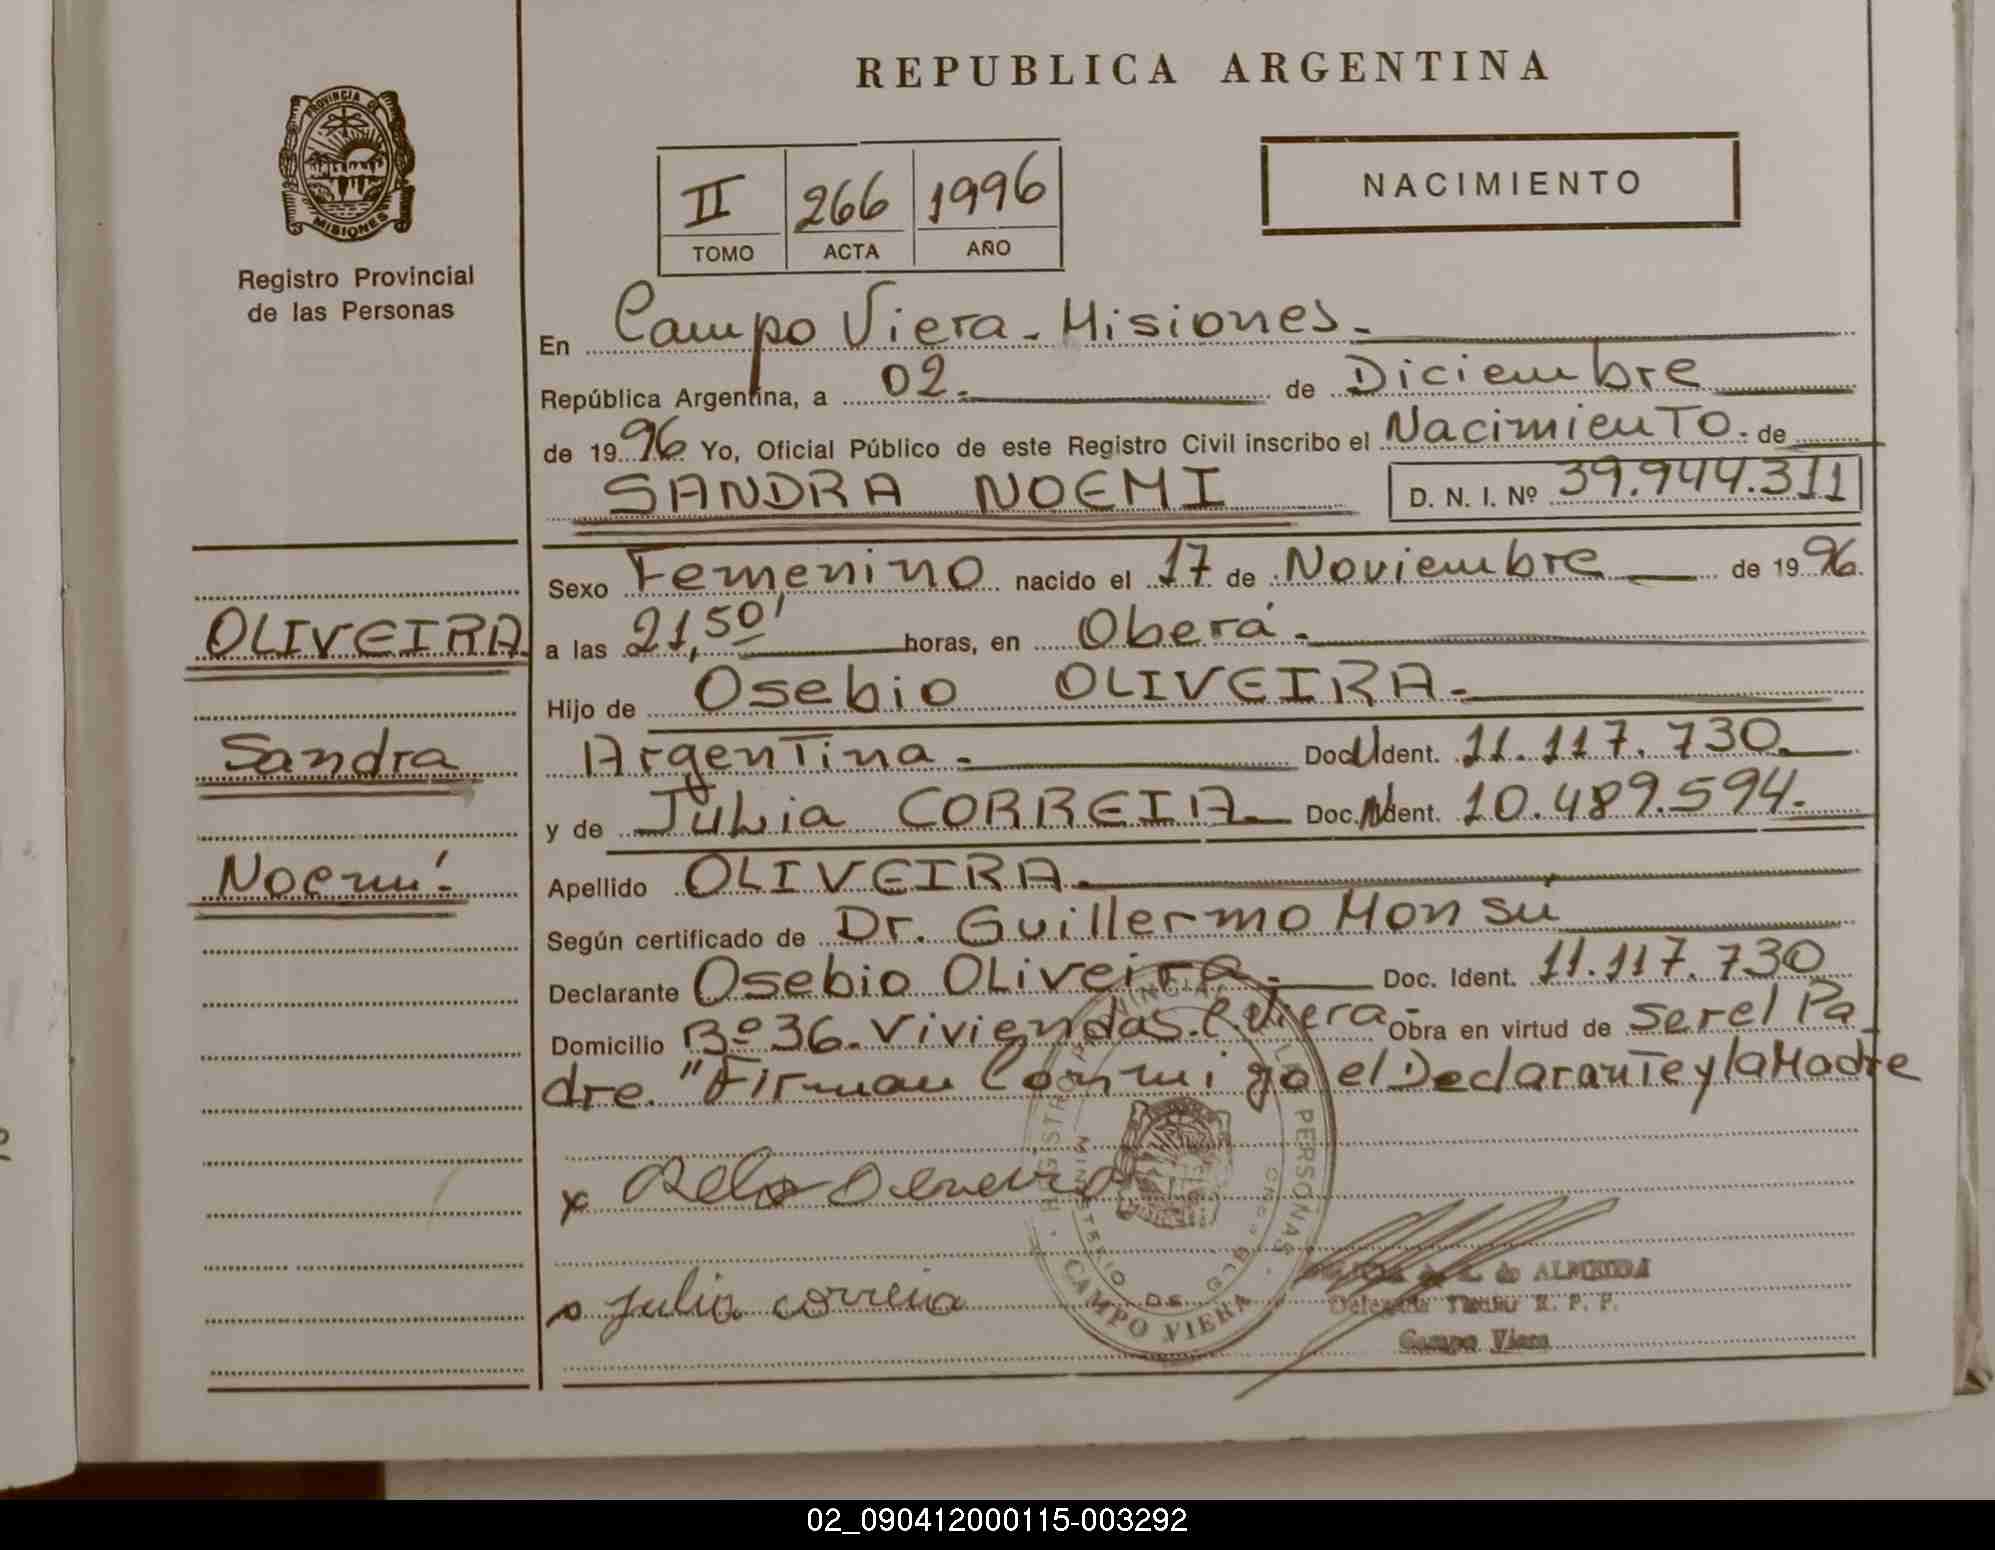 REPUBLICA ARGENTINA
PROVINCIA DE
MISIONES
Registro Provincial
de las Personas
II 266 1996
TOMO ACTA AÑO
NACIMIENTO
En Campo Viera - Misiones.-
República Argentina, a 02.- de Diciembre
de 1996 Yo, Oficial Público de este Registro Civil inscribo el Nacimiento. de
SANDRA NOEMI D. N. I. Nº 39.944.311
Sexo Femenino nacido el 17 de Noviembre de 1996.
OLIVEIRA
a las 21,50' horas, en Oberá.-
Hijo de Osebio OLIVEIRA.-
Sandra
Argentina.- Doc. Ident. 11.117.730.
y de Julia CORREIA Doc. Ident. 10.489.594.
Noemí.
Apellido OLIVEIRA.
Según certificado de Dr. Guillermo Monsú
Declarante Osebio Oliveira.- Doc. Ident. 11.117.730
Domicilio Bº 36. Viviendas. C. Viera. Obra en virtud de ser el Pa
dre. "Firman Conmigo el Declarante y la Madre
x
Julia correia
REGISTRO PROVINCIAL DE LAS PERSONAS
MINISTERIO DE GOB
CAMPO VIERA
de ALMEIDA
Delegada Titular R. P. P.
Campo Viera
02_090412000115-003292